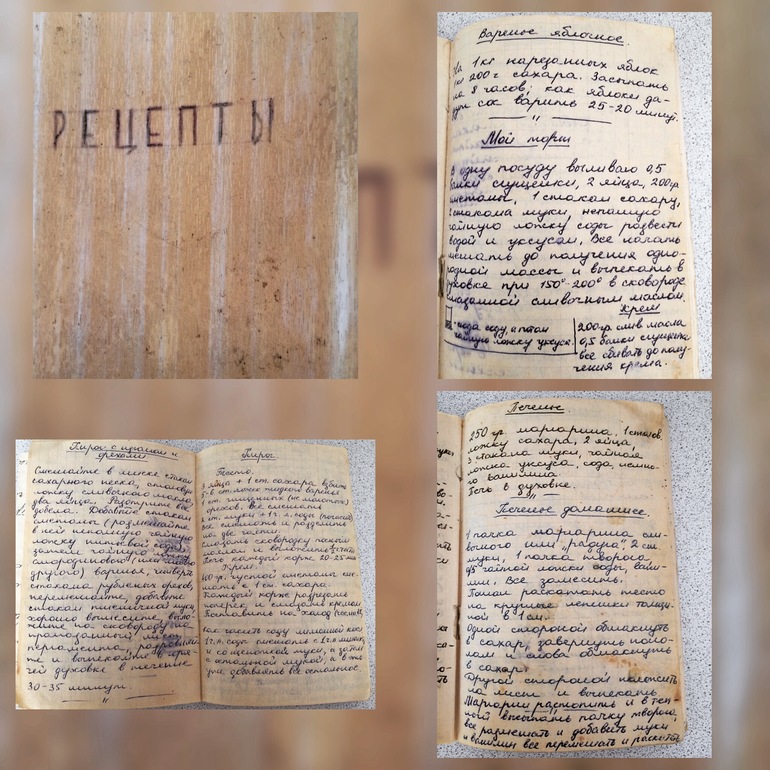 РЕЦЕПТЫ
Варенье яблочное.
На 1 кг нарезанных яблок
1 кг 200 г сахара. Засыпать
на 8 часов, как яблоки да-
дут сок варить 25-20 минут.
"
Мой торт
В одну посуду выливаю 0,5
банки сгущенки, 2 яйца, 200гр.
сметаны, 1 стакан сахару,
2 стакана муки, неполную
чайную ложку соды развести
водой и уксусом. Все начать
мешать до получения одно-
родной массы и выпекать в
духовке при 150°-200° в сковороде
смазанной сливочным маслом.
Крем
сода соду, а потом
чайную ложку уксуса.
200гр. слив масла
0,5 банки сгущенки
все сбивать до полу-
чения крема.
Пирог с изюмом и
орехами
Смешайте в миске стакан
сахарного песка, столовую
ложку сливочного масла,
два яйца. Разотрите все
добела. Добавьте стакан
сметаны (размешайте
в ней неполную чайную
ложку питьевой соды),
затем чайную
смородинового (или
другого) варенья, четверть
стакана рубленых орехов,
перемешайте, добавьте
стакан пшеничной муки,
хорошо вымесите, выло-
жите на сковороду на
промазанный
пергамента, разровняй-
те и выпекайте в горя-
чей духовке в течение
30-35 минут.
"
Пирог
Тесто.
3 яйца + 1 ст. сахара взбить
5-6 ст. ложек жидкого варенья
1 ст. орехов. Все смешать
2 ст. муки + 1 ч.л. соды
Все смешать и разделить
на две части.
Смазать сковороду
маслом и выложить
Печь каждый корж 20-25 мин
Крем.
400 гр. густой сметаны сме-
шать с 1 ст. сахара.
Каждый корж разрезать
поперек и смазать кремом
Поставить на холод
как гасить соду лимонной кисл
1/2 ч. соды смешать с
и со щепоткой муки, а затем
с остальной мукой, и в это
добавлять все остальное.
Печенье.
250 гр. маргарина, 1 столов.
ложку сахара, 2 яйца,
3 стакана муки, чайная
ложка уксуса, сода, немно-
го ванилина
Печь в духовке.
"
Печенье домашнее.
1 пачка маргарина сли-
вочного или "Радуга", 2 ст.
муки, 1 пачка творога,
0,5 чайной ложки соды, вани-
лин. Все замесить.
Потом раскатать тесто
на круглые лепешки толщи-
ной в 1 см.
Одной стороной обмакнуть
в сахар, завернуть попо-
лам и снова обмакнуть
в сахар.
Другой стороной положить
на лист и выпекать.
Маргарин растопить и в теп-
лый высыпать пачку творога,
все размешать и добавить муки
и ванилин все перемешать и раскатать